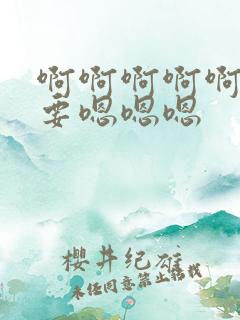 啊啊啊啊啊
要嗯嗯嗯
樱井纪雄
未经同意禁止转载